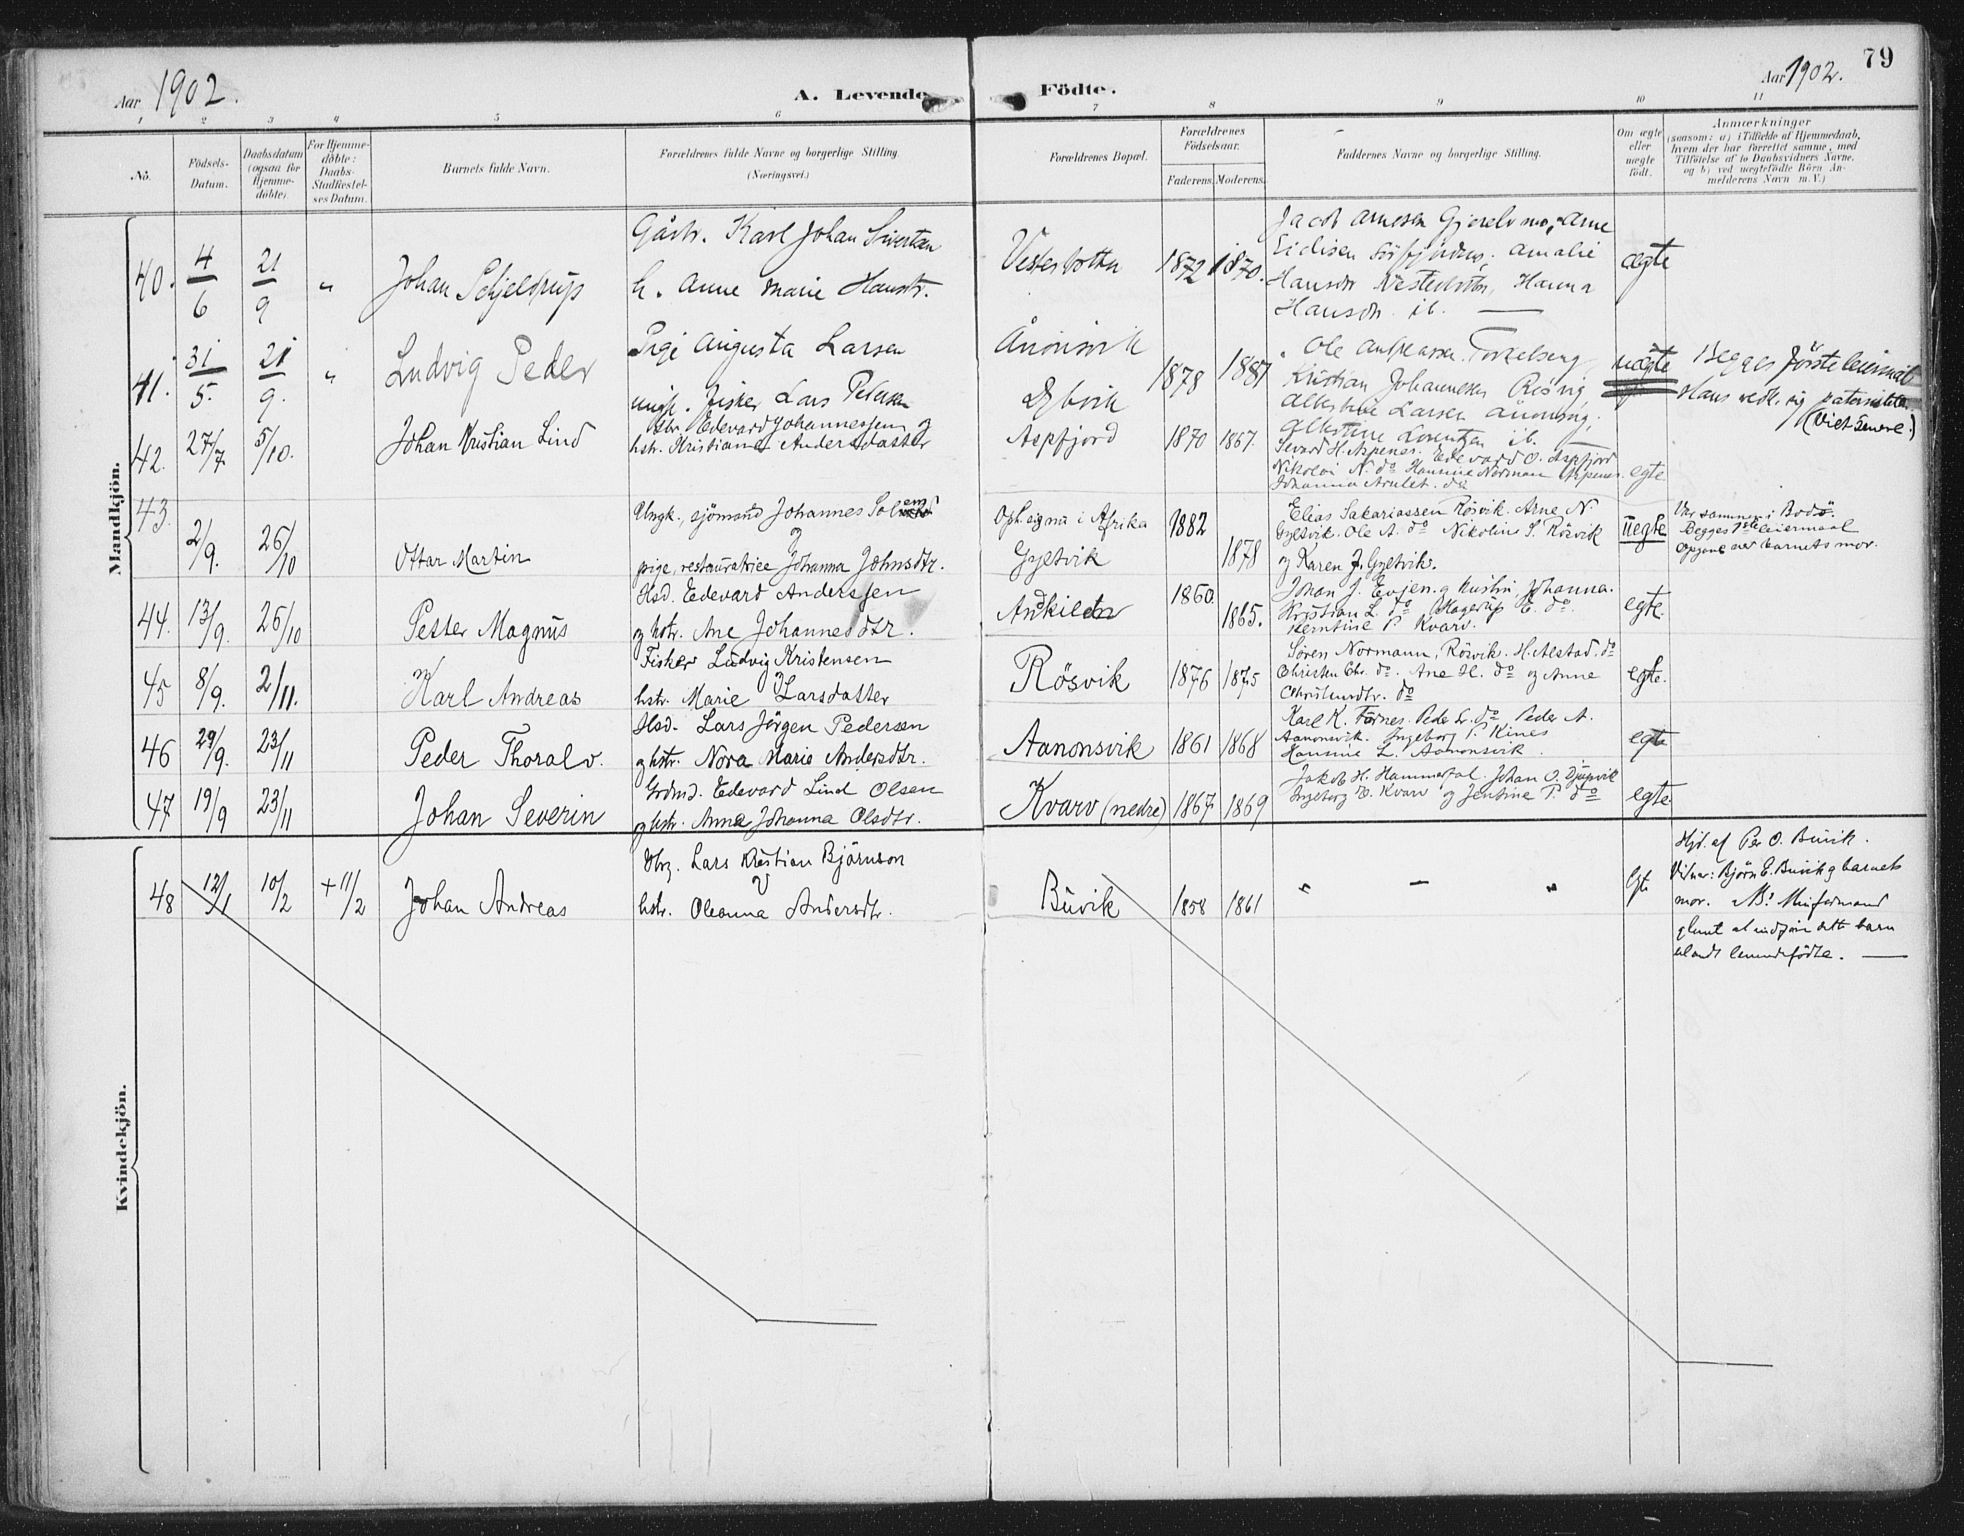 Aar 1902.
A. Levende
Födte.
Aar 1902.
79
1 2 3 4 5 6 7 8 9 10 11
No.
Födsels-Datum.
Daabsdatum (ogsaa for Hjemme-döbte).
For Hjemme-döbte: Daabs-Stadfæstel-ses Datum.
Barnets fulde Navn.
Forældrenes fulde Navne og borgerlige Stilling (Næringsvei.)
Forældrenes Bopæl.
Forældrenes Födselsaar.
Faderens. Moderens.
Faddernes Navne og borgerlige Stilling.
Om ægte eller uægte födt.
Anmærkninger
(saasom: a) i Tilfælde af Hjemmedaab,
hvem der har forrettet samme, med
Tilföielse af to Daabsvidners Navne,
og b) ved uægtefödte Börn An-
melderens Navn m. V.)
Mandkjön.
40. 4/6 21/9 " Johan Schjeldrup
Gårbr. Karl Johan Sivertsen
h. Anne Marie Hansdtr.
1872 1870.
Jacob Arnesen
Hansen Hanna
Hansdr. ib.
ægte
41. 31/5. 21/9. " Ludvig Peder
Pige Augusta Larsen
ungk. fisker Lars Petersen
Ånonsvik
Dybvik
1878 1881
Ole
Kristian Johannesen Rösvig,
Larsen Ånonsvig,
Albertine Lorentzen ib.
uægte
Begges förste leiermål
Hans vedk. sig
42. 27/7 5/10. Johan Kristian Lind
Gbr. Edevard Johannessen og
hstr. Kristiane Andersdatter
Aspfjord
1870 1867.
Sevard H. Aspenes. Edevard O. Aspfjord
Nikolai N. do Hansine Norman Aspenes.
Johanna do
egte
43. 2/9. 26/10 Ottar Martin
Ungk., sjömand Johannes Solem
og
pige, restauratrice Johanna Johnsdtr.
Oph. sig nu i Afrika
Gyltvik
1882
1878
Elias Sakariassen Rösvik. Arne N.
Gyltvik. Ole A. do Nikoline S. Rösvik
og Karen J. Gyltvik.
uegte
Var sammen i Bodö.
Begges 1ste leiermaal
Opgave ved barnets mor.
44. 13/9. 26/10 Petter Magnus
Hsd. Edevard Anderssen
og hstr. Ane Johannesdtr.
1860
1865.
Johan J. Evjen.
Kristian L. do do.
Kvarv.
egte.
45 8/9. 2/11. Karl Andreas
Fisker Ludvig Kristensen
og
hstr. Marie Larsdatter
Rösvik
1876 1875
Sören Normann, Rösvik. H. Alstad. do
Christen Chr. do. Ane H. do og Anne
do
egte.
46 29/9. 23/11 Peder Thoralv.
Hsd. Lars Jörgen Pedersen
og hstr. Nora Marie Andersdtr.
Aanonsvik
1861 1868
Karl K. Fornes. Peder L. do Peder A.
Aanonsvik. Ingeborg P. Kines
Hansine L. Aanonsvik.
egte
47 19/9 23/11 Johan Severin
Grdmd. Edevard Lind Olsen
og hstr. Anna Johanna Olsdtr.
Kvarv (nedre)
1867 1869
Jakob H. Hammerfal. Johan O. Djupvik
Ingeborg Kvarv og Jentine P. do
egte.
Kvindekjön.
48 12/1 10/2 + 11/2 Johan Andreas
Lars Kristian Björnson
og
hstr. Oleanna Andersdtr.
Buvik
1858 1861
" - "
egte
Hjd. af Per O. Buvik.
Vidner: Björn E. Buvik og barnets
mor.
glemt at indføre dette barn
blandt levendefödte.